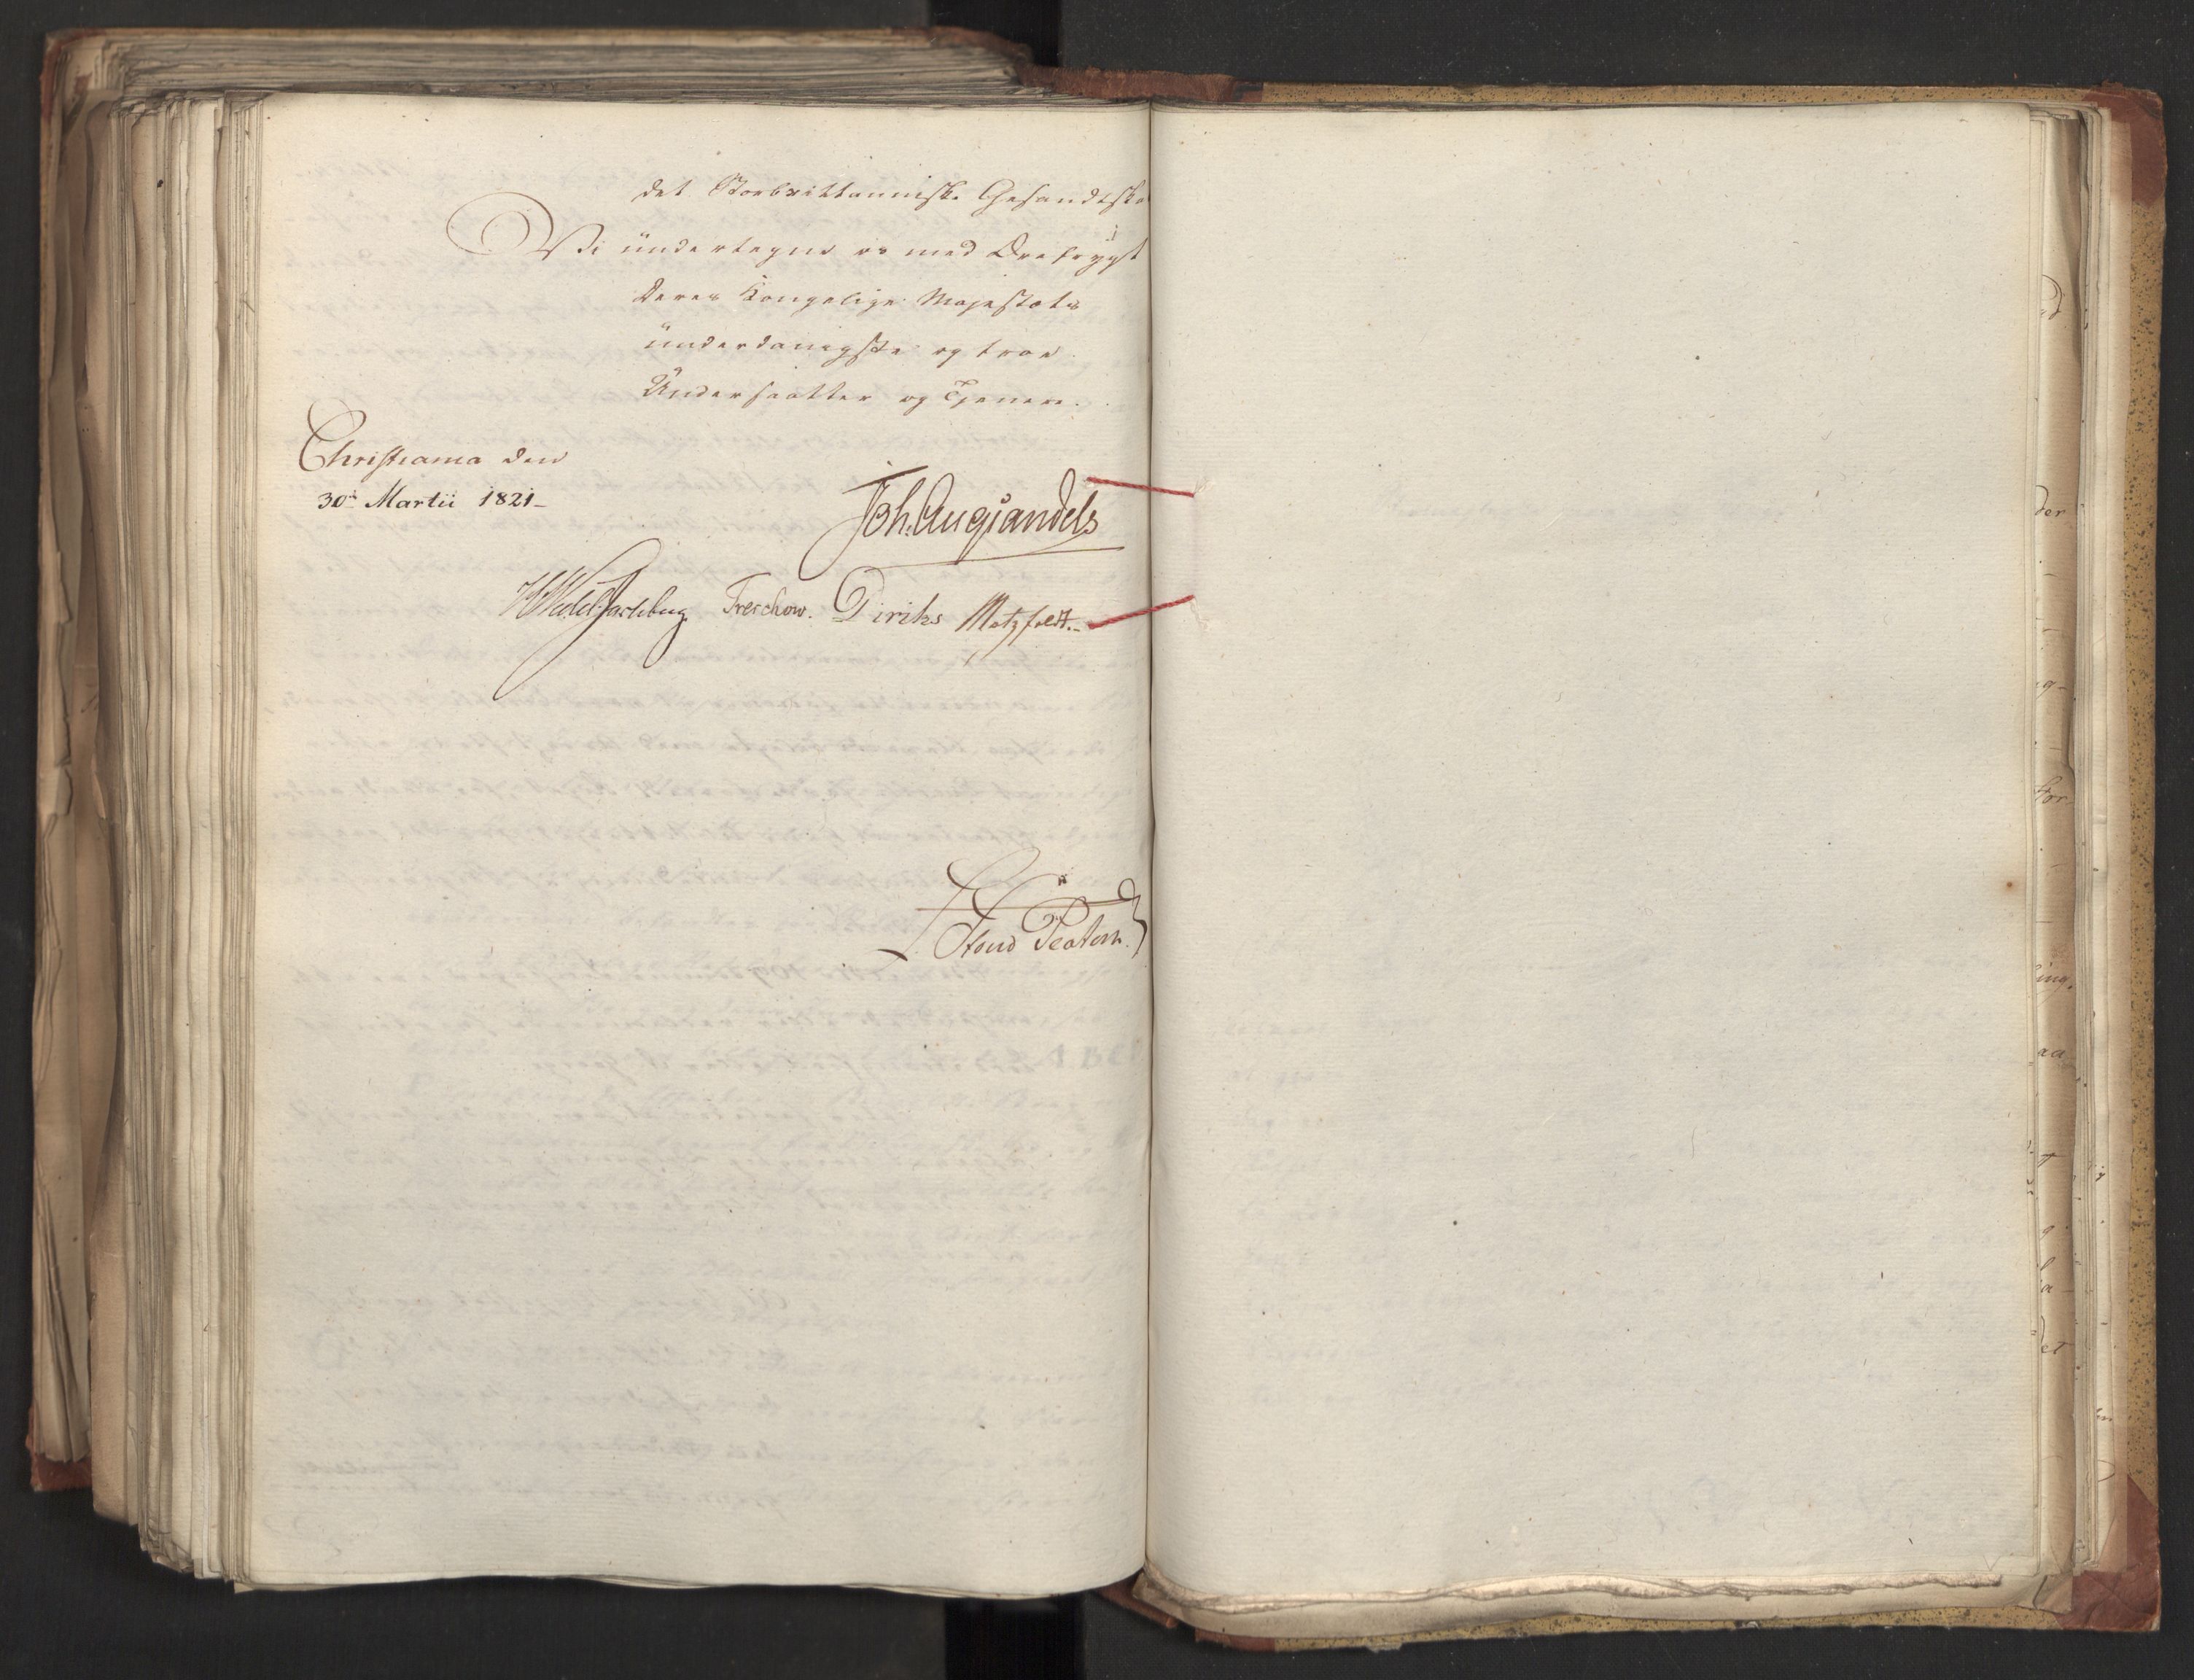 det Storbrittanniske Gesandtska
Vi ündertegne os med Ærefrygt
Deres Kongelige Majestæts
ünderdanigste og troe
Ündersaatter og Tjenere.
Christiania den
30te Martii 1821-
Joh. Aug. Sandels
HWedel Jarlsberg Treschow. Diriks Motzfeldt.-
der
For
ing.
aa
det